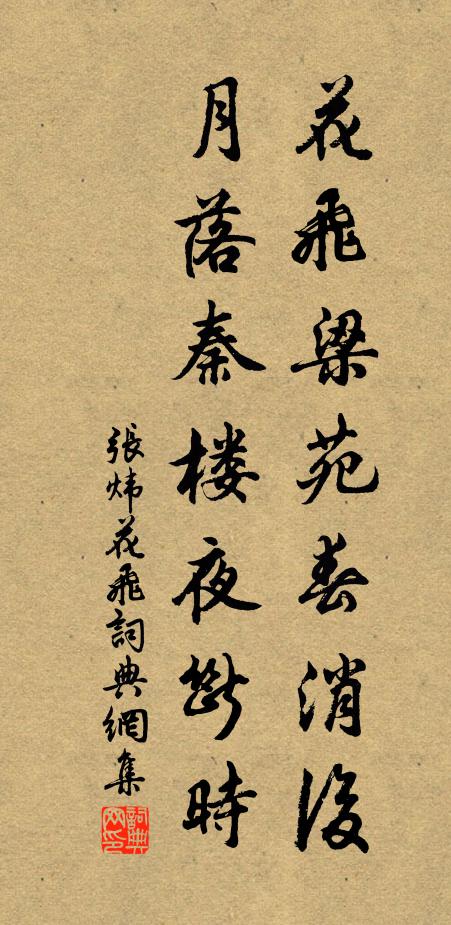 花飛梁苑春消後
月落秦楼夜斷時
張炜花飛詞典網集
詞典網印